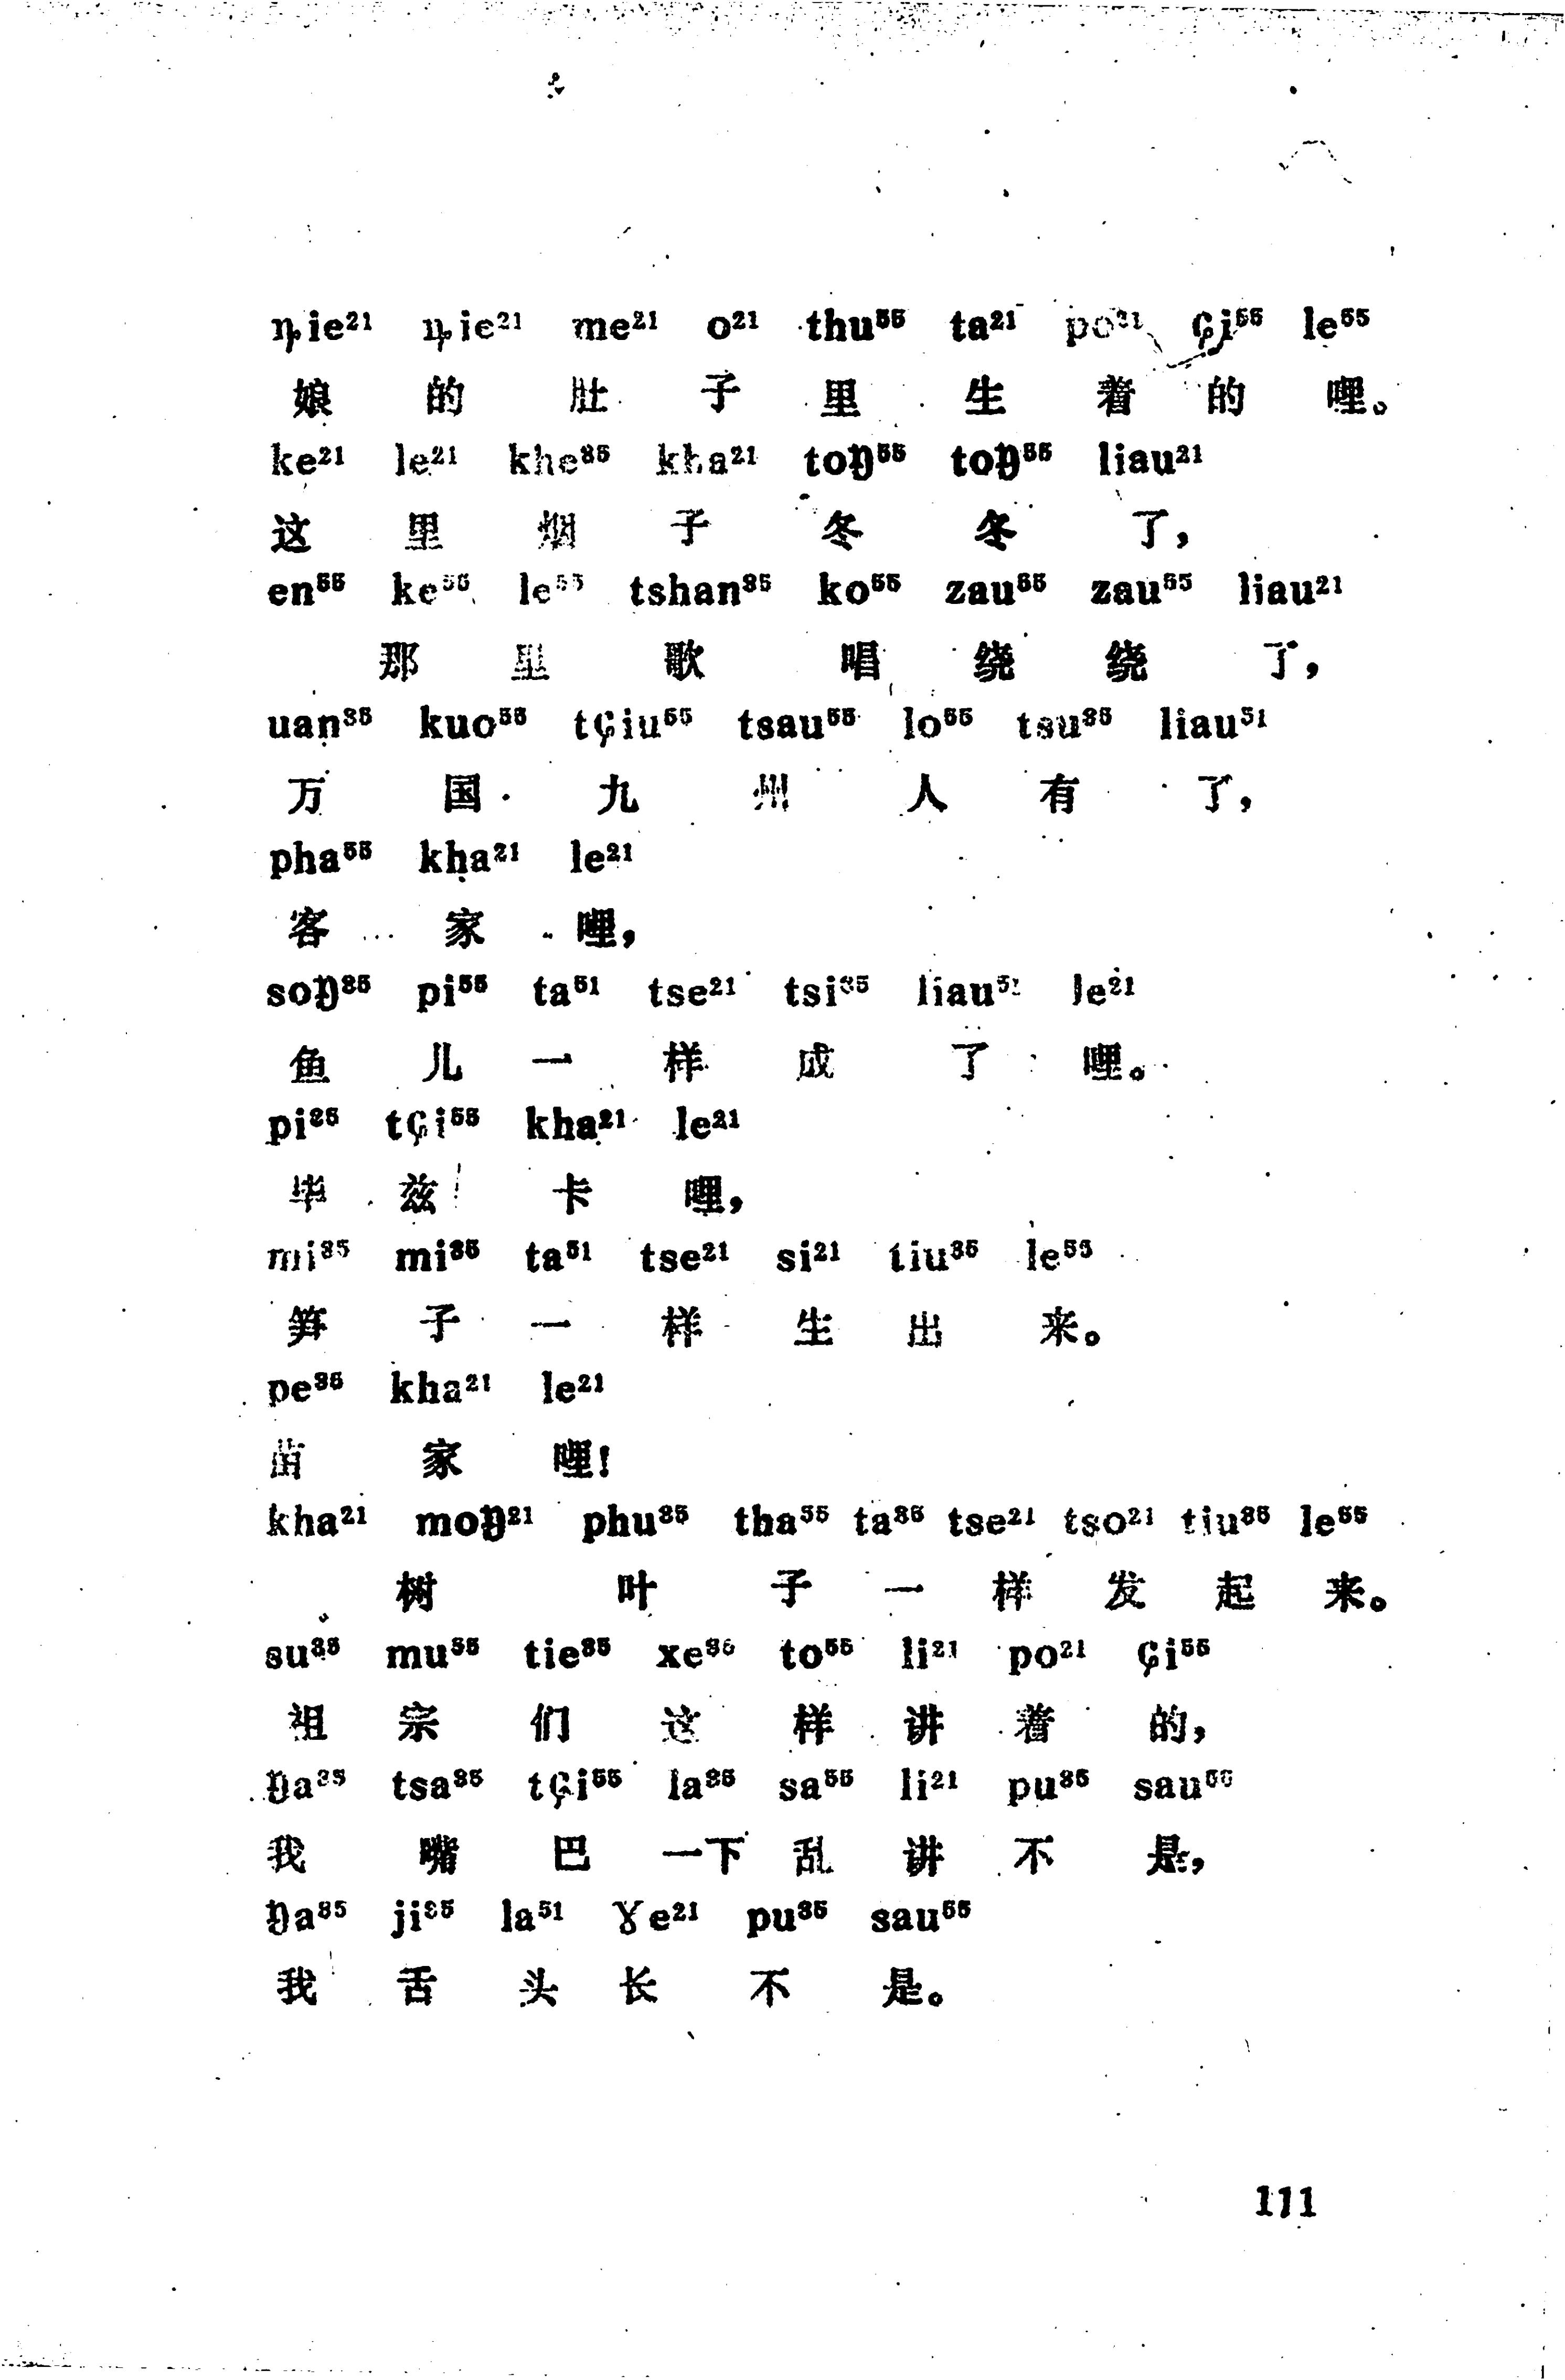 ȵie²¹ ȵie²¹ me²¹ o²¹ thu⁵⁵ ta²¹ po²¹ ɕi⁵⁵ le⁵⁵
娘 的 肚 子 里 生 着 的 哩。
ke²¹ le²¹ khe³⁵ kha²¹ toŋ⁵⁵ toŋ⁵⁵ liau²¹
这 里 烟 子 冬 冬 了，
en⁵⁵ ke⁵⁵ le⁵⁵ tshan³⁵ ko⁵⁵ zau⁵⁵ zau⁵⁵ liau²¹
那 里 歌 唱 绕 绕 了，
uan³⁵ kuo⁵⁵ tɕiu⁵⁵ tsau⁵⁵ lo⁵⁵ tsu³⁵ liau⁵¹
万 国 九 州 人 有 了，
pha⁵⁵ kha²¹ le²¹
客 家 哩，
soŋ³⁵ pi⁵⁵ ta⁵¹ tse²¹ tsi³⁵ liau⁵¹ le²¹
鱼 儿 一 样 成 了 哩。
pi³⁵ tɕi⁵⁵ kha²¹ le²¹
毕 兹 卡 哩，
mi³⁵ mi³⁵ ta⁵¹ tse²¹ si²¹ tiu³⁵ le⁵⁵
笋 子 一 样 生 出 来。
pe³⁵ kha²¹ le²¹
苗 家 哩！
kha²¹ moŋ²¹ phu³⁵ tha⁵⁵ ta³⁵ tse²¹ tso²¹ tiu³⁵ le⁵⁵
树 叶 子 一 样 发 起 来。
su³⁵ mu⁵⁵ tie³⁵ xe³⁵ to⁵⁵ li²¹ po²¹ ɕi⁵⁵
祖 宗 们 这 样 讲 着 的，
ŋa³⁵ tsa³⁵ tɕi⁵⁵ la³⁵ sa⁵⁵ li²¹ pu³⁵ sau⁵⁵
我 嘴 巴 一下 乱 讲 不 是，
ŋa³⁵ ji³⁵ la⁵¹ ɣe²¹ pu³⁵ sau⁵⁵
我 舌 头 长 不 是。
111